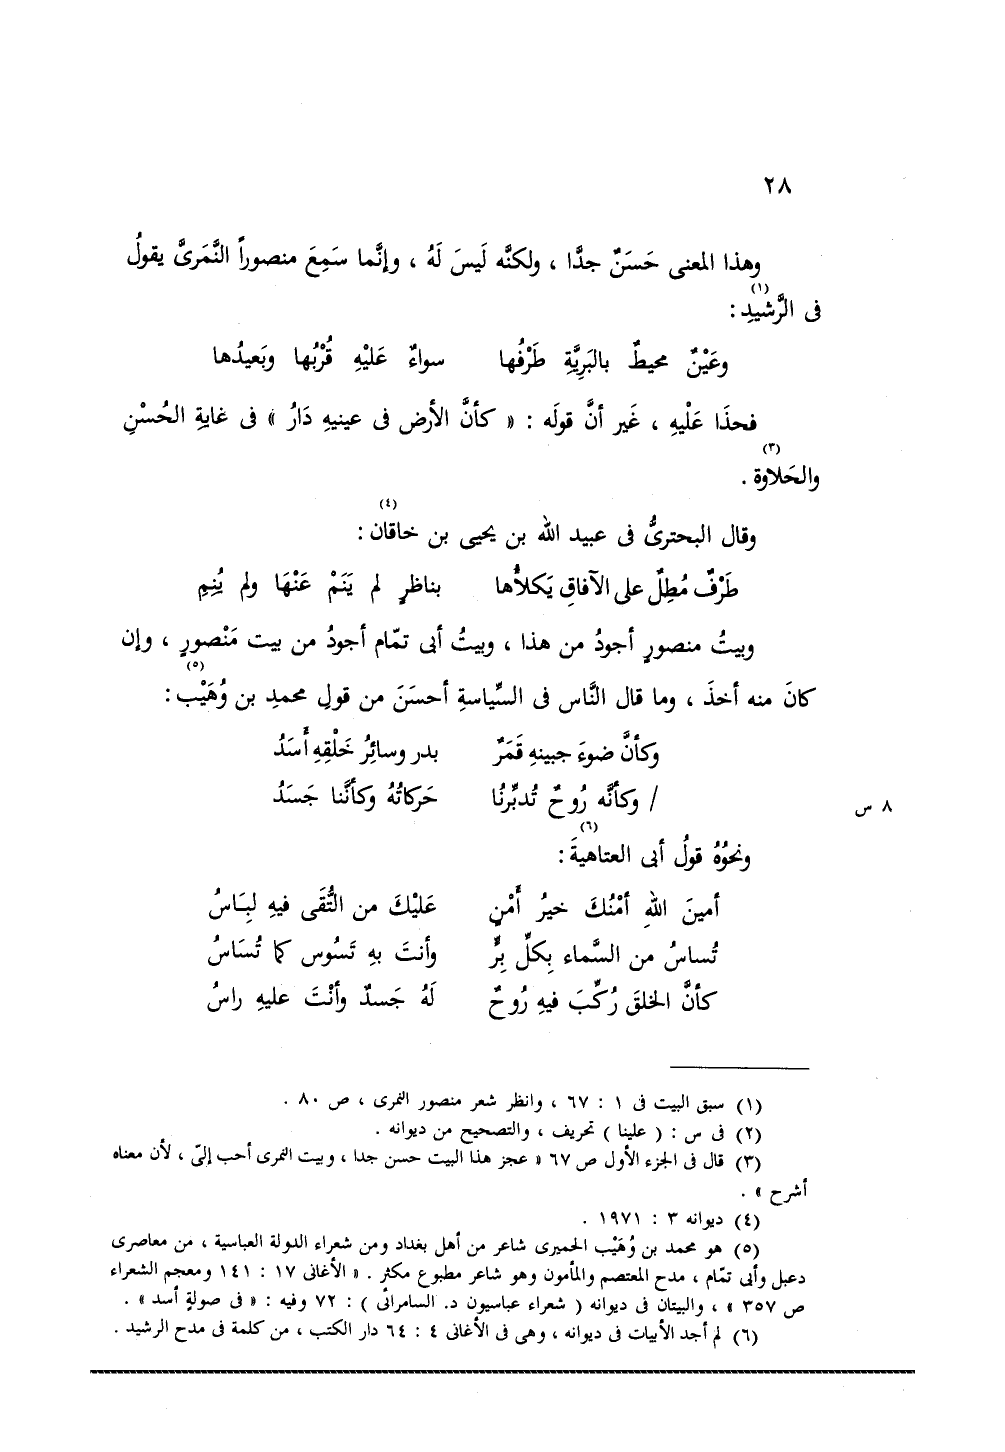 ٢٨
وهذا المعنى حَسَنٌ جدًّا ، ولكنَّه لَيسَ لَهُ ، وإنَّما سَمِعَ منصوراً النَّمَرىَّ يقولُ
فى الرَّشيدِ (١) :
وعَيْنٌ محيطٌ بالبَرِيَّةِ طَرْفُها    سواءٌ عَليْهِ قُرْبُها وبَعيدُها
فحذَا عَلْيهِ ، غَير أنَّ قولَه : « كأنَّ الأرض فى عينيهِ دَارُ » فى غايةِ الحُسْنِ
والحَلاوة (٣) .
وقال البحترىُّ فى عبيد الله بن يحيى بن خاقان (٤) :
طَرْفٌ مُطِلٌ على الآفاقِ يَكلأُها    بناظرٍ لم يَنَمْ عَنْهَا ولم يُنِمِ
وبيتُ منصورٍ أجودُ من هذا ، وبيتُ أبى تمّام أجودُ من بيت مَنْصورٍ ، وإن
كانَ منه أخذَ ، وما قال النَّاس فى السِّياسةِ أحسَنَ من قولِ محمدِ بن وُهَيْب (٥) :
وكأنَّ ضوءَ جبينهِ قَمَرٌ    بدر وسائِرُ خَلْقِهِ أَسَدُ
/ وكأنَّه رُوحٌ تُدبِّرنُا    حَركاتُهُ وكأنَّنا جَسَدُ
٨ س
ونحوُهُ قولُ أبى العتاهيةَ (٦) :
أمينَ اللهِ أمْنُكَ خيرُ أَمْنٍ    عَليْكَ من التُّقَى فيهِ لبِـَاسُ
تُساسُ من السَّماء بِكلِّ بِرٍّ    وأنتَ بهِ تَسُوس كما تُسَاسُ
كأنَّ الخلقَ رُكِّبَ فيهِ رُوحٌ    لَهُ جَسدٌ وأنْتَ عليهِ راسُ
(١) سبق البيت فى ١ : ٦٧ ، وانظر شعر منصور النمرى ، ص ٨٠ .
(٢) فى س : ( علينا ) تحريف ، والتصحيح من ديوانه .
(٣) قال فى الجزء الأول ص ٦٧ « عجز هذا البيت حسن جدا ، وبيت النمرى أحب إلىّ ، لأن معناه
أشرح » .
(٤) ديوانه ٣ : ١٩٧١ .
(٥) هو محمد بن وُهَيْب الحميرى شاعر من أهل بغداد ومن شعراء الدولة العباسية ، من معاصرى
دعبل وأبى تمّام ، مدح المعتصم والمأمون وهو شاعر مطبوع مكثر . « الأغانى ١٧ : ١٤١ ومعجم الشعراء
ص ٣٥٧ » ، والبيتان فى ديوانه ( شعراء عباسيون د. السامرائى ) : ٧٢ وفيه : « فى صولةٍ أسد » .
(٦) لم أجد الأبيات فى ديوانه ، وهى فى الأغانى ٤ : ٦٤ دار الكتب ، من كلمة فى مدح الرشيد .